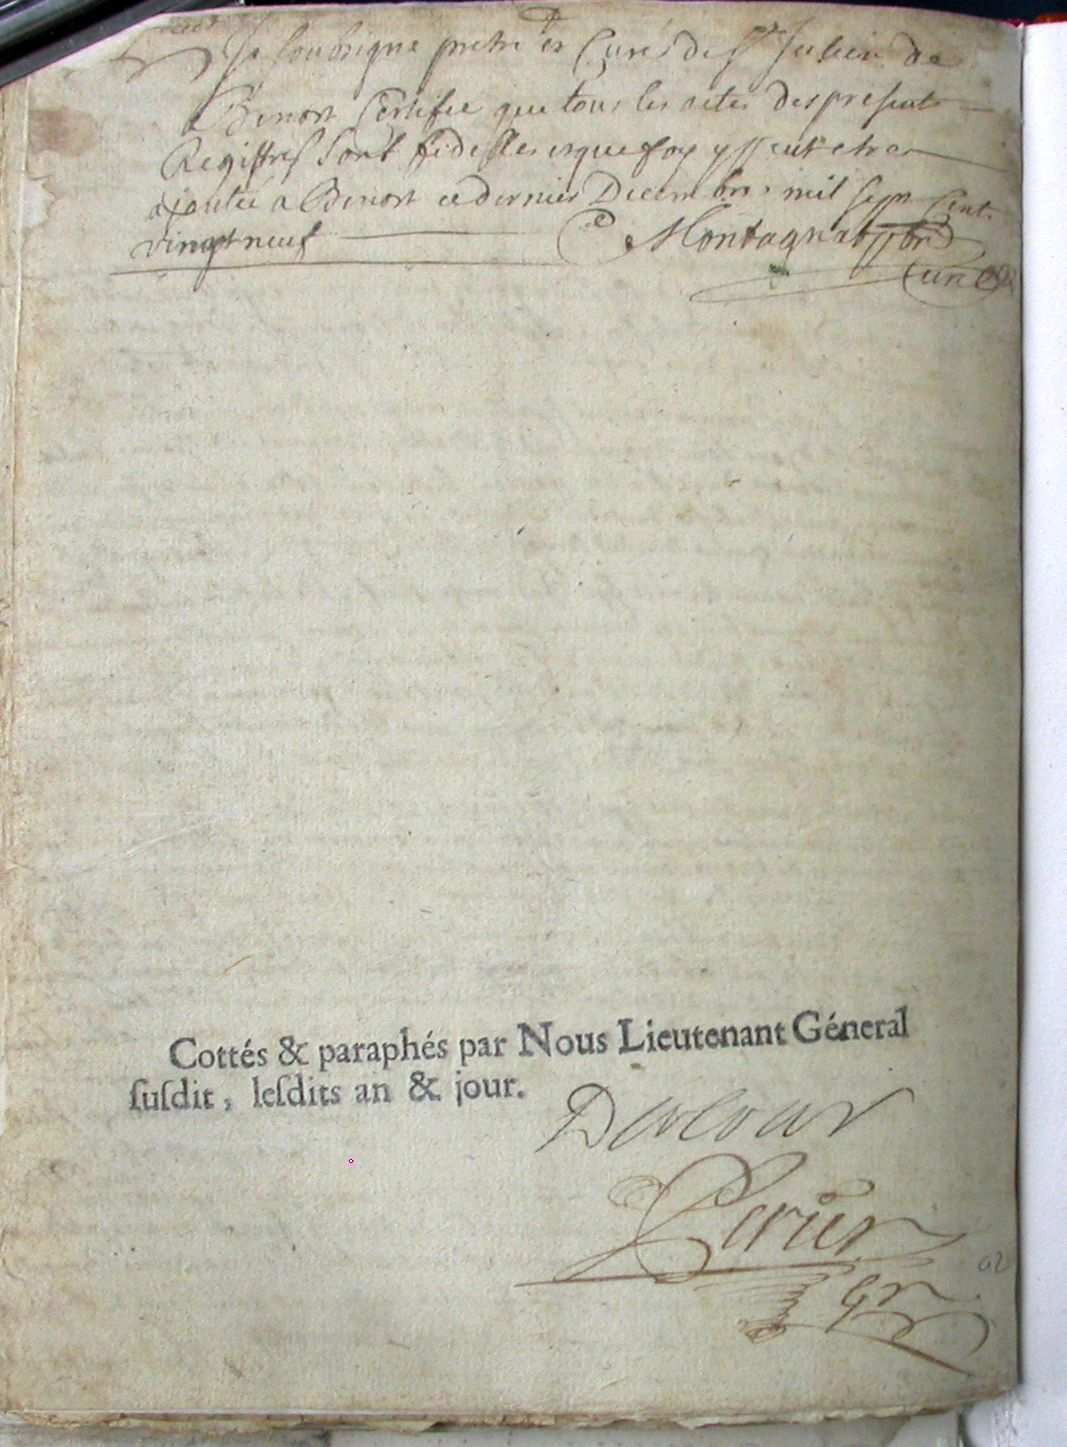 Je soubsigne pretre et Curé de St Julien de
Benost Certifie que tous les actes des presents
Registres sont fidelles et que foy y peut etre
ajoutée a Benost ce dernier Decembre mil sept Cent
vingt neuf Montagnat pbre
Curé
Cottés & paraphés par Nous Lieutenant Géneral
ſuſdit, leſdits an & jour.
Perier
Gr